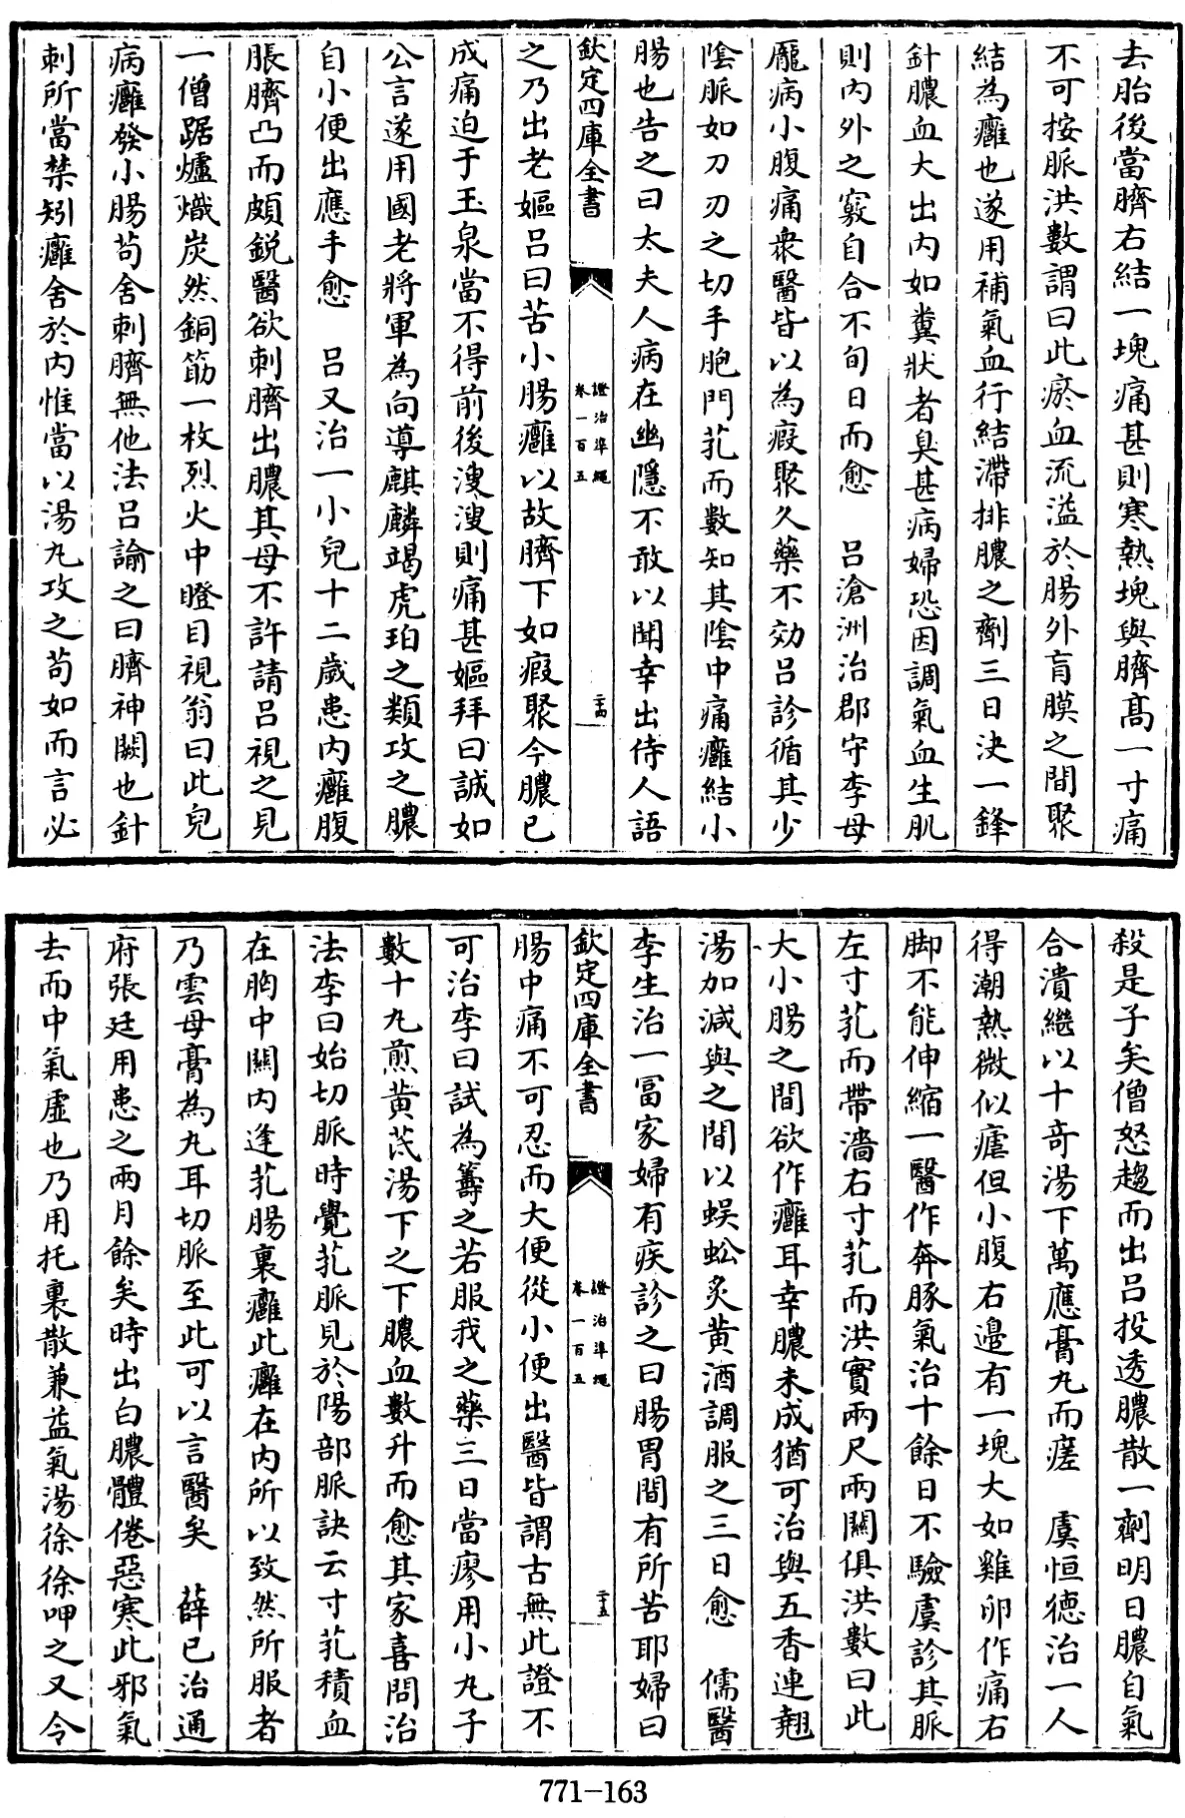 去胎後當臍右結一塊痛甚則寒熱塊與臍髙一寸痛
不可按脈洪數謂曰此瘀血流溢於腸外肓膜之間聚
結為癰也遂用補氣血行結滯排膿之劑三日決一鋒
針膿血大出内如糞狀者臭甚病婦恐因調氣血生肌
則内外之竅自合不旬日而愈　吕滄洲治郡守李母
龎病小腹痛衆醫皆以為瘕聚久藥不効吕診循其少
陰脈如刀刃之切手胞門芤而數知其陰中痛癰結小
腸也告之曰太夫人病在幽隱不敢以聞幸出侍人語
欽定四庫全書
證治準繩
卷一百五
二十四
之乃出老嫗吕曰苦小腸癰以故臍下如瘕聚今膿已
成痛迫于玉泉當不得前後溲溲則痛甚嫗拜曰誠如
公言遂用國老將軍為向導麒麟竭虎珀之類攻之膿
自小便出應手愈　吕又治一小兒十二歲患内癰腹
脹臍凸而頗鋭醫欲刺臍出膿其母不許請吕視之見
一僧踞爐熾炭然銅筯一枚烈火中瞪目視翁曰此兒
病癰發小腸茍舍刺臍無他法吕諭之曰臍神闕也針
刺所當禁矧癰舍於内惟當以湯丸攻之茍如而言必
殺是子矣僧怒趨而出吕投透膿散一劑明日膿自氣
合潰繼以十竒湯下萬應膏丸而瘥　虞恒德治一人
得潮熱微似瘧但小腹右邊有一塊大如雞卵作痛右
脚不能伸縮一醫作奔豚氣治十餘日不驗虞診其脈
左寸芤而帶濇右寸芤而洪實兩尺兩關俱洪數曰此
大小腸之間欲作癰耳幸膿未成猶可治與五香連翹
湯加減與之間以蜈蚣炙黄酒調服之三日愈　儒醫
李生治一冨家婦有疾診之曰腸胃間有所苦耶婦曰
欽定四庫全書
證治準繩
卷一百五
二十五
腸中痛不可忍而大便從小便出醫皆謂古無此證不
可治李曰試為籌之若服我之藥三日當廖用小丸子
數十丸煎黄茋湯下之下膿血數升而愈其家喜問治
法李曰始切脈時覺芤脈見於陽部脈訣云寸芤積血
在胸中關内逢芤腸裏癰此癰在内所以致然所服者
乃雲母膏為丸耳切脈至此可以言醫矣　薛已治通
府張廷用患之兩月餘矣時出白膿體倦惡寒此邪氣
去而中氣虚也乃用托裏散兼益氣湯徐徐呷之又令
771-163